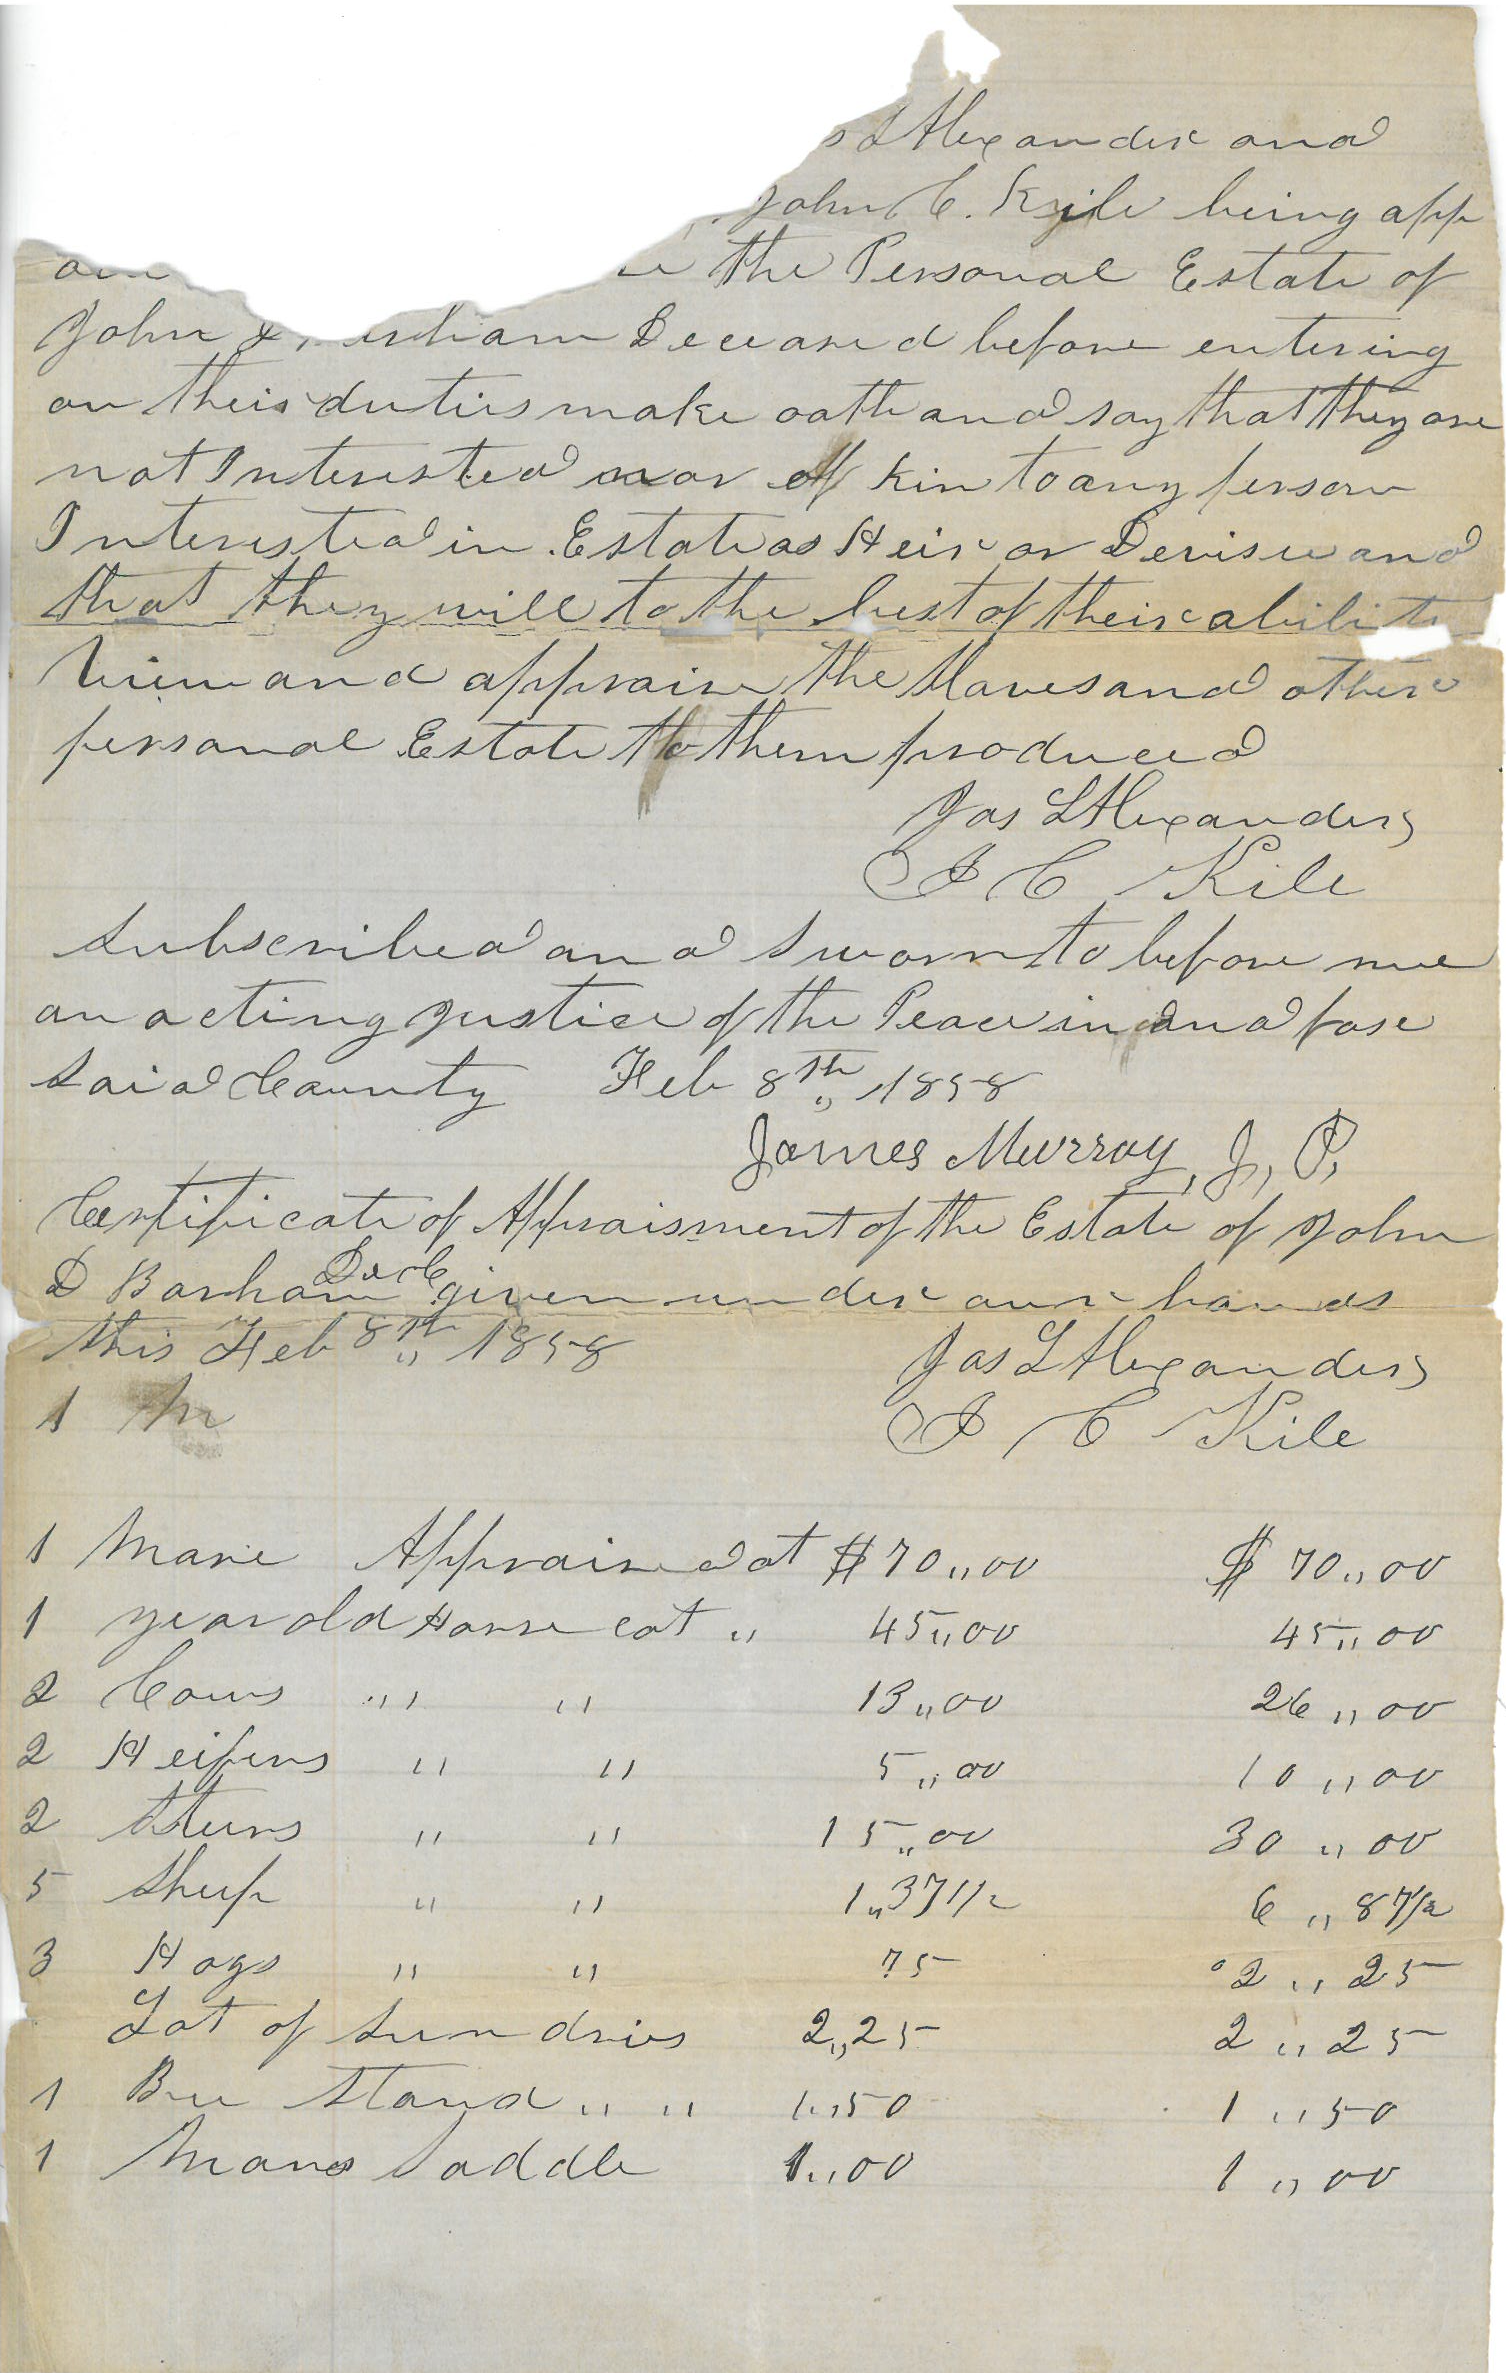 s L Alexander and
John C. Kyile being app
the Personal Estate of
John D. Barham Deceased before entering
on their duties make oath and say that they are
not Interested nor of kin to any person
Interested in Estate as Heir or Devisee and
that they will to the best of their abilitie
View and appraise the Slaves and other
personal Estate to them produced
Jas L Alexander
J C Kile
Subscribed and Sworn to before me
an acting Justice of the Peace in and for
Said County Feb 8th 1858
James Murray, J, P,
Certificate of Appraisment of the Estate of John
D Barham Decd given under our hands
this Feb 8th 1858 Jas L Alexander
1 M J C Kile
1 Mare Appraised at $70,,00 $ 70,,00
1 year old Horse cot ,, 45,,00 45,,00
2 Cows ,, ,, 13,,00 26,,00
2 Heifers ,, ,, 5,,00 10,,00
2 Steers ,, ,, 15,,00 30,,00
5 Sheep ,, ,, 1,,37 1/2 6,,87 1/2
3 Hogs ,, ,, 75 2,,25
Lot of Sundries 2,,25 2,,25
1 Bee Stand ,, ,, 1,,50 1,,50
1 Mans Saddle 1,,00 1,,00